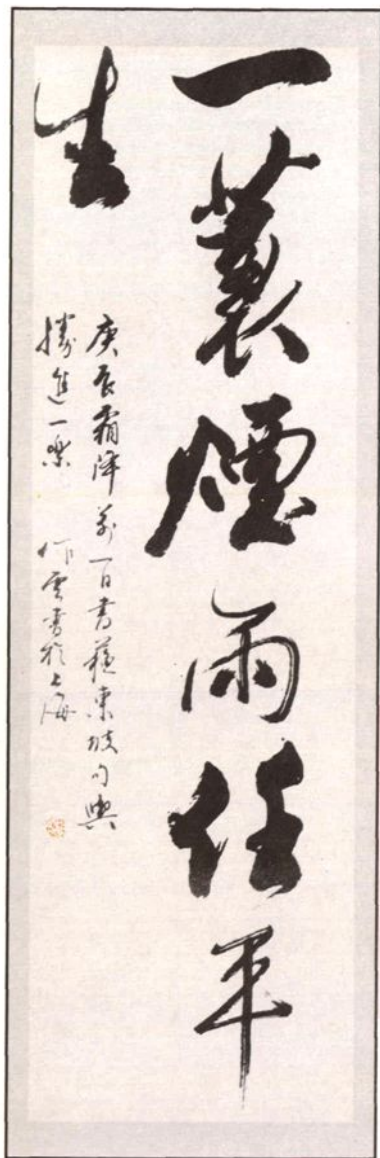 一蓑煙雨任平
生
庚辰霜降前一日書蘇東坡句與
勝進一樂
作雲書於上海